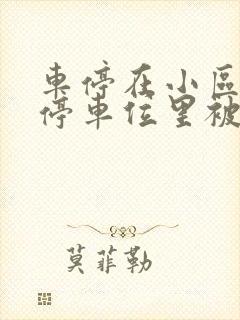 車停在小區
停車位里被
莫菲勒